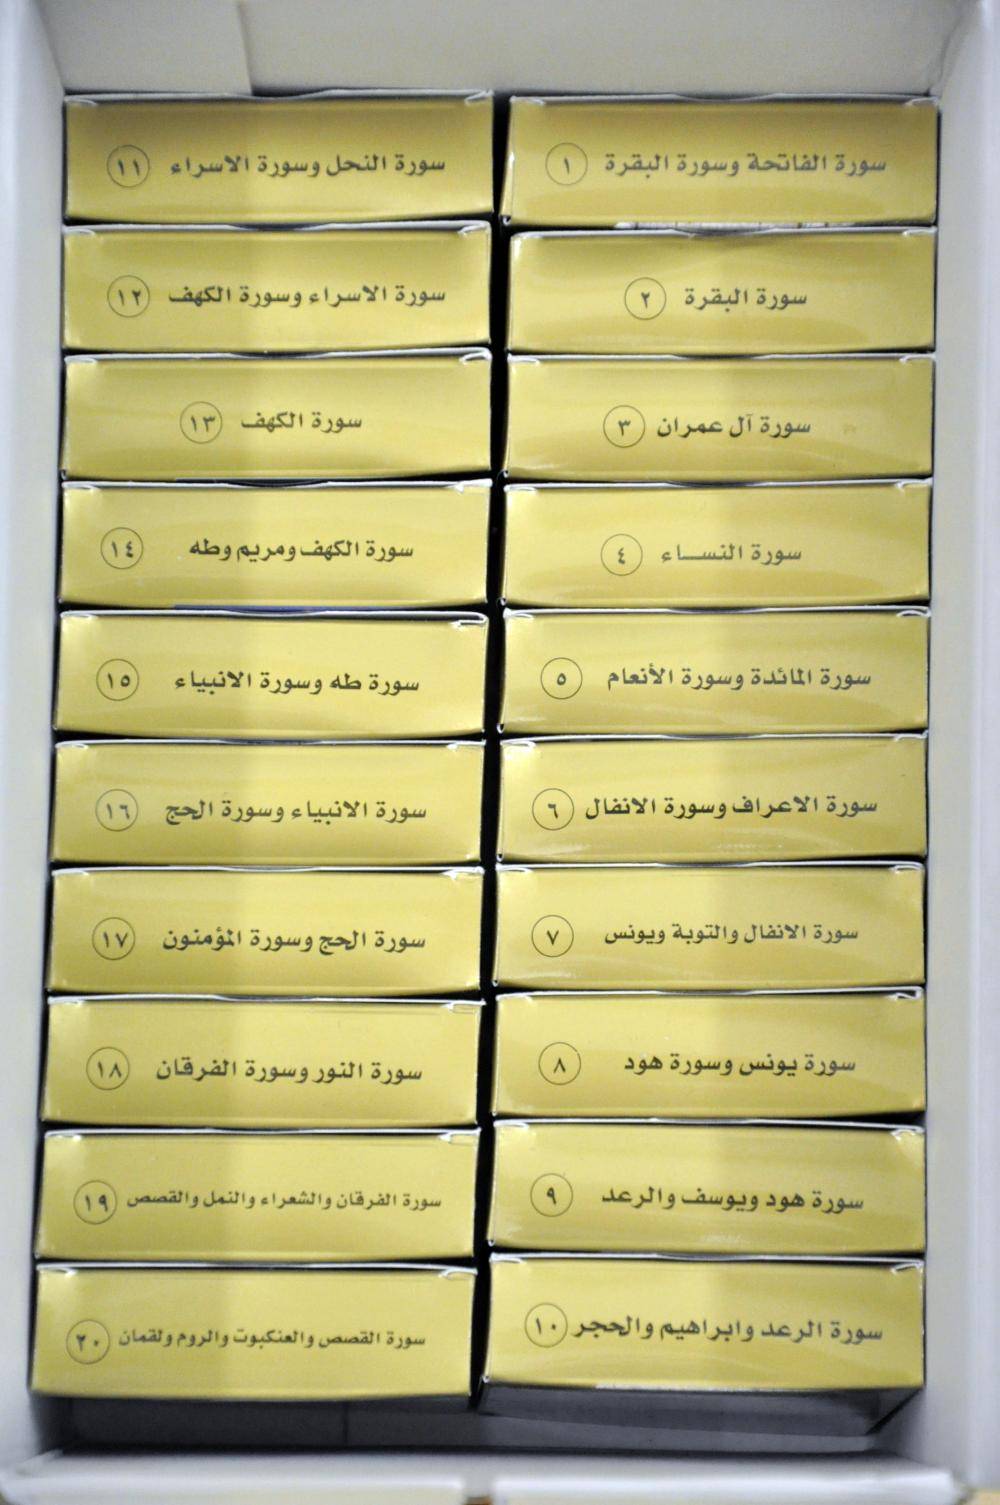 سورة الفاتحة وسورة البقرة ١
سورة البقرة ٢
سورة آل عمران ٣
سورة النســاء ٤
سورة المائدة وسورة الأنعام ٥
سورة الاعراف وسورة الانفال ٦
سورة الانفال والتوبة ويونس ٧
سورة يونس وسورة هود ٨
سورة هود ويوسف والرعد ٩
سورة الرعد وابراهيم والحجر ١٠
سورة النحل وسورة الاسراء ١١
سورة الاسراء وسورة الكهف ١٢
سورة الكهف ١٣
سورة الكهف ومريم وطه ١٤
سورة طه وسورة الانبياء ١٥
سورة الانبياء وسورة الحج ١٦
سورة الحج وسورة المؤمنون ١٧
سورة النور وسورة الفرقان ١٨
سورة الفرقان والشعراء والنمل والقصص ١٩
سورة القصص والعنكبوت والروم ولقمان ٢٠